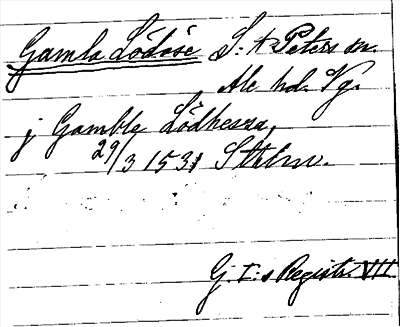 Gamla Lödöse S:t Peters sn.
Ale hd. Vg.
j Gamble Lödhessa,
29/3 1531 Sthlm.
G. I:s Registr. VIII